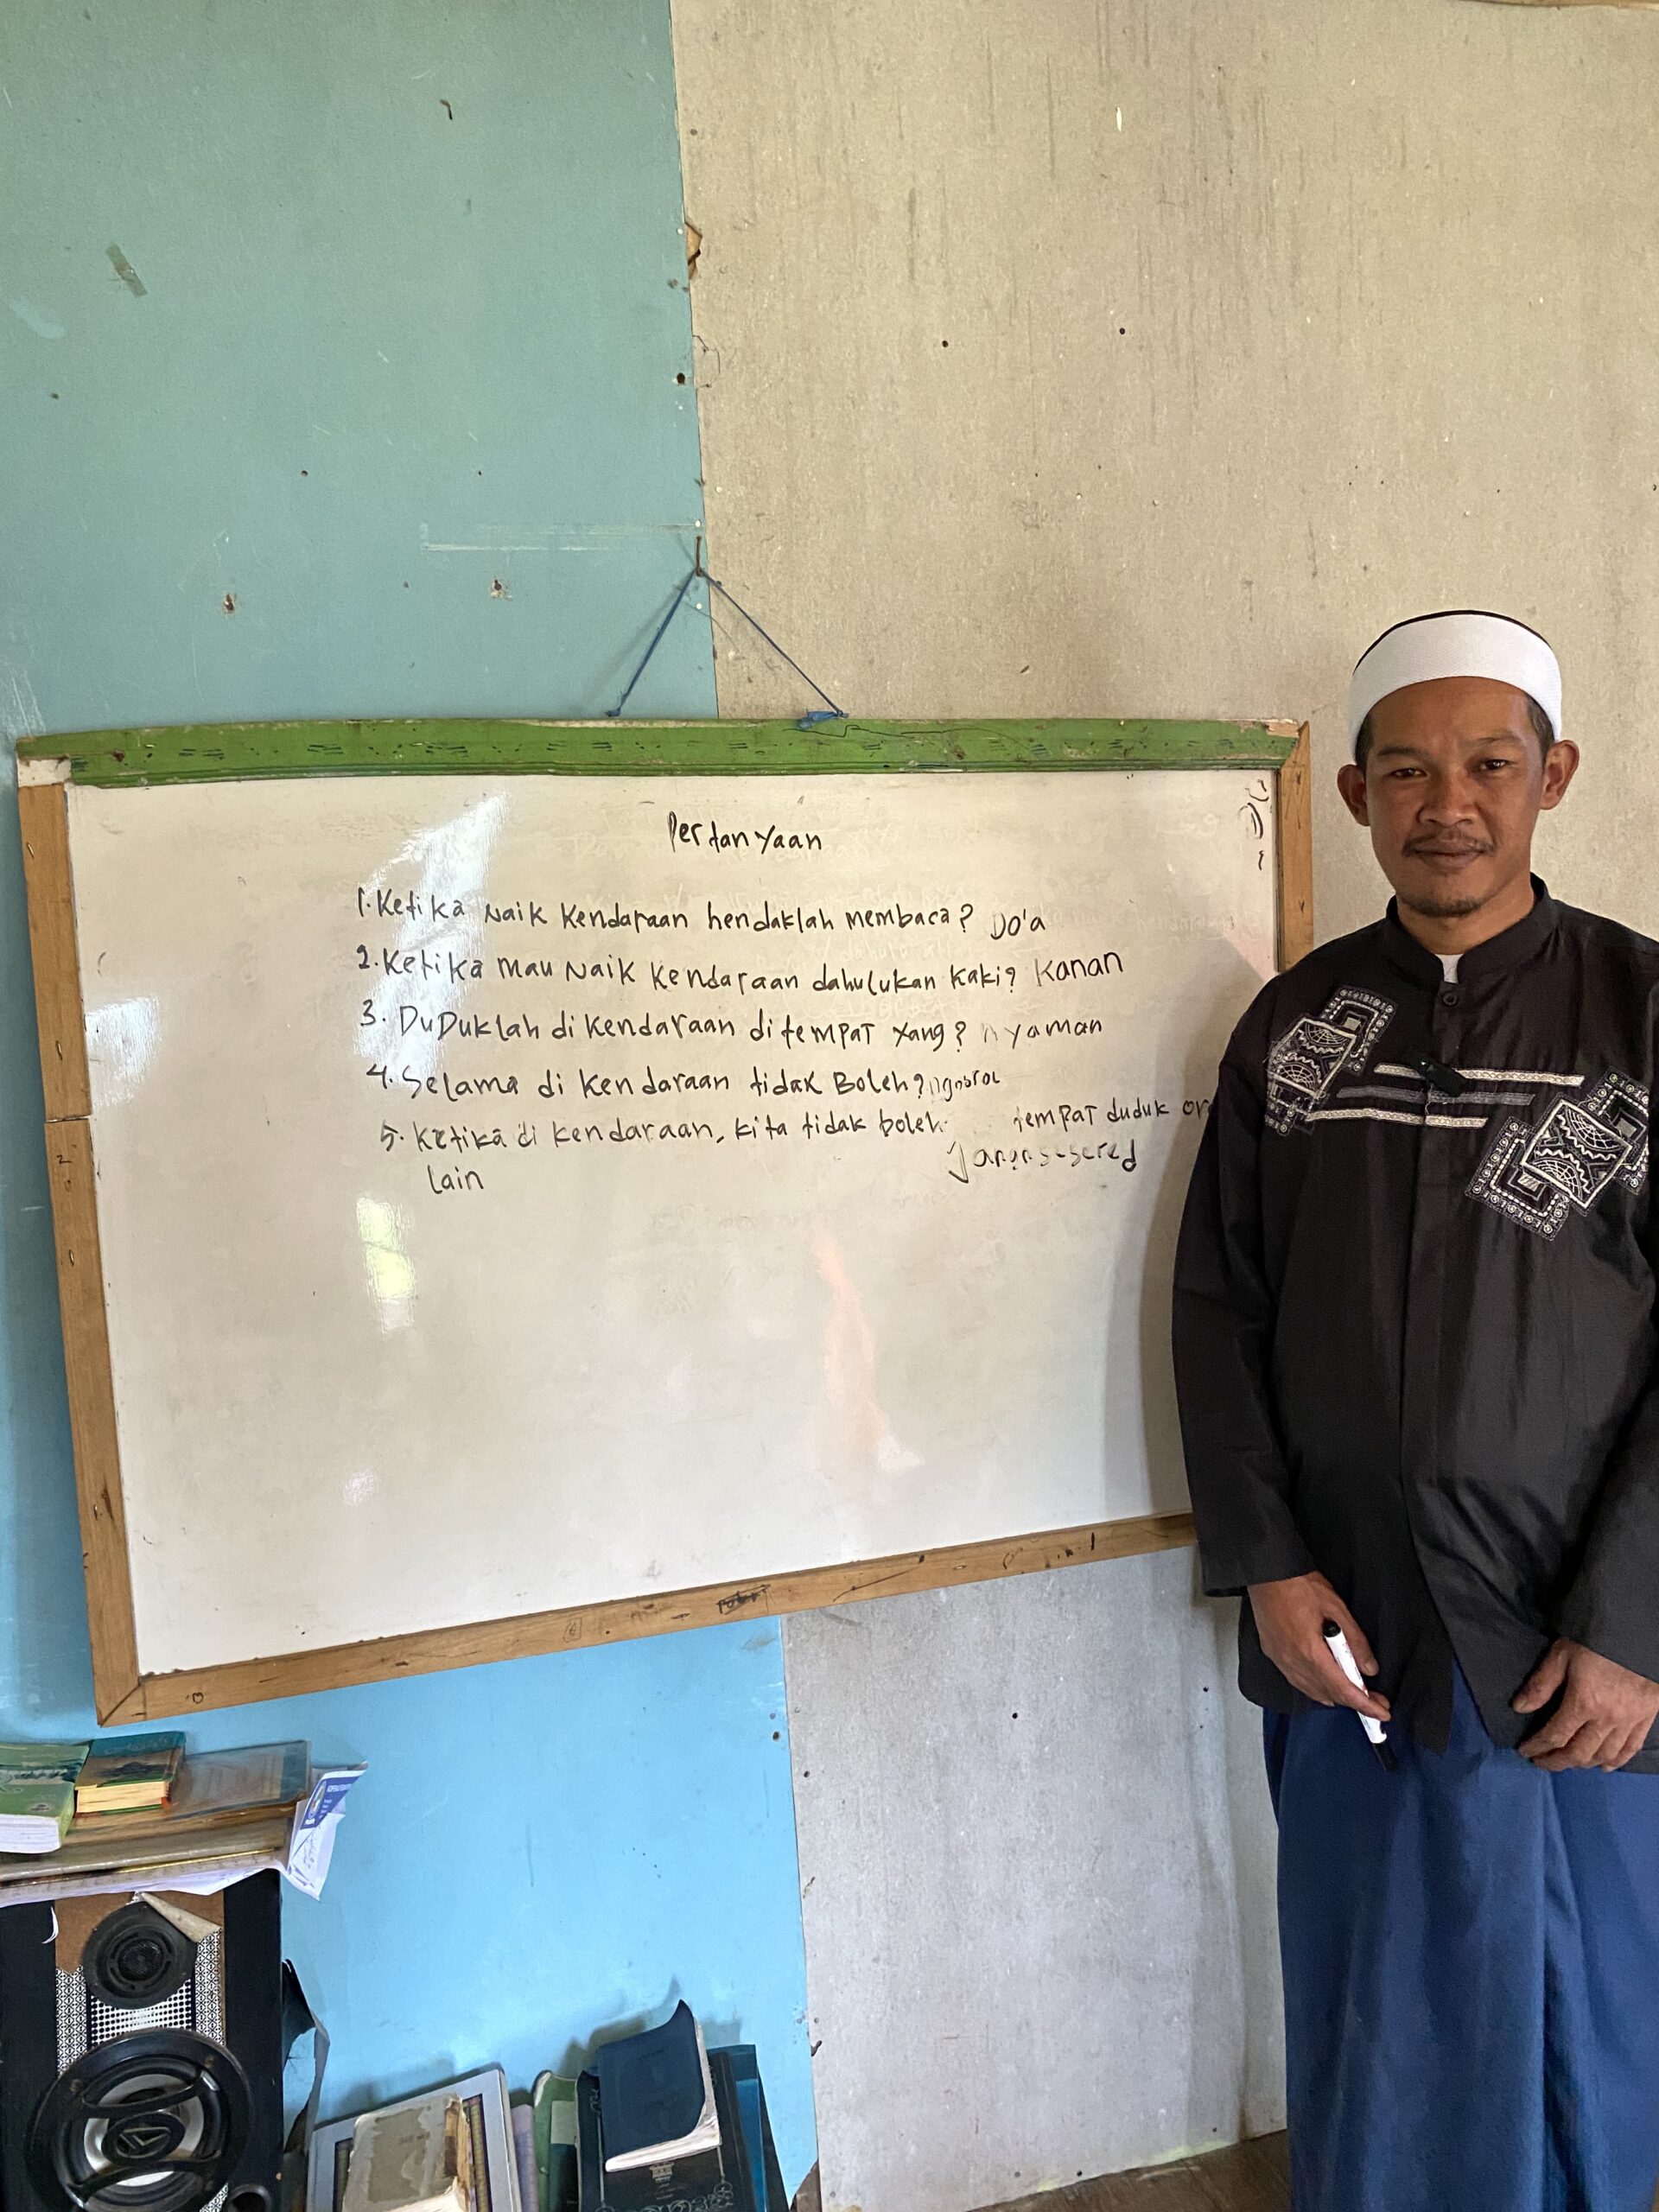 Pertanyaan
1. Ketika Naik Kendaraan hendaklah membaca? Do'a
2. Ketika mau Naik Kendaraan dahulukan kaki? Kanan
3. DuDuklah di kendaraan ditempat yang? nyaman
4. Selama di kendaraan tidak Boleh? ngobrol
5. Ketika di kendaraan, kita tidak boleh tempat duduk
lain